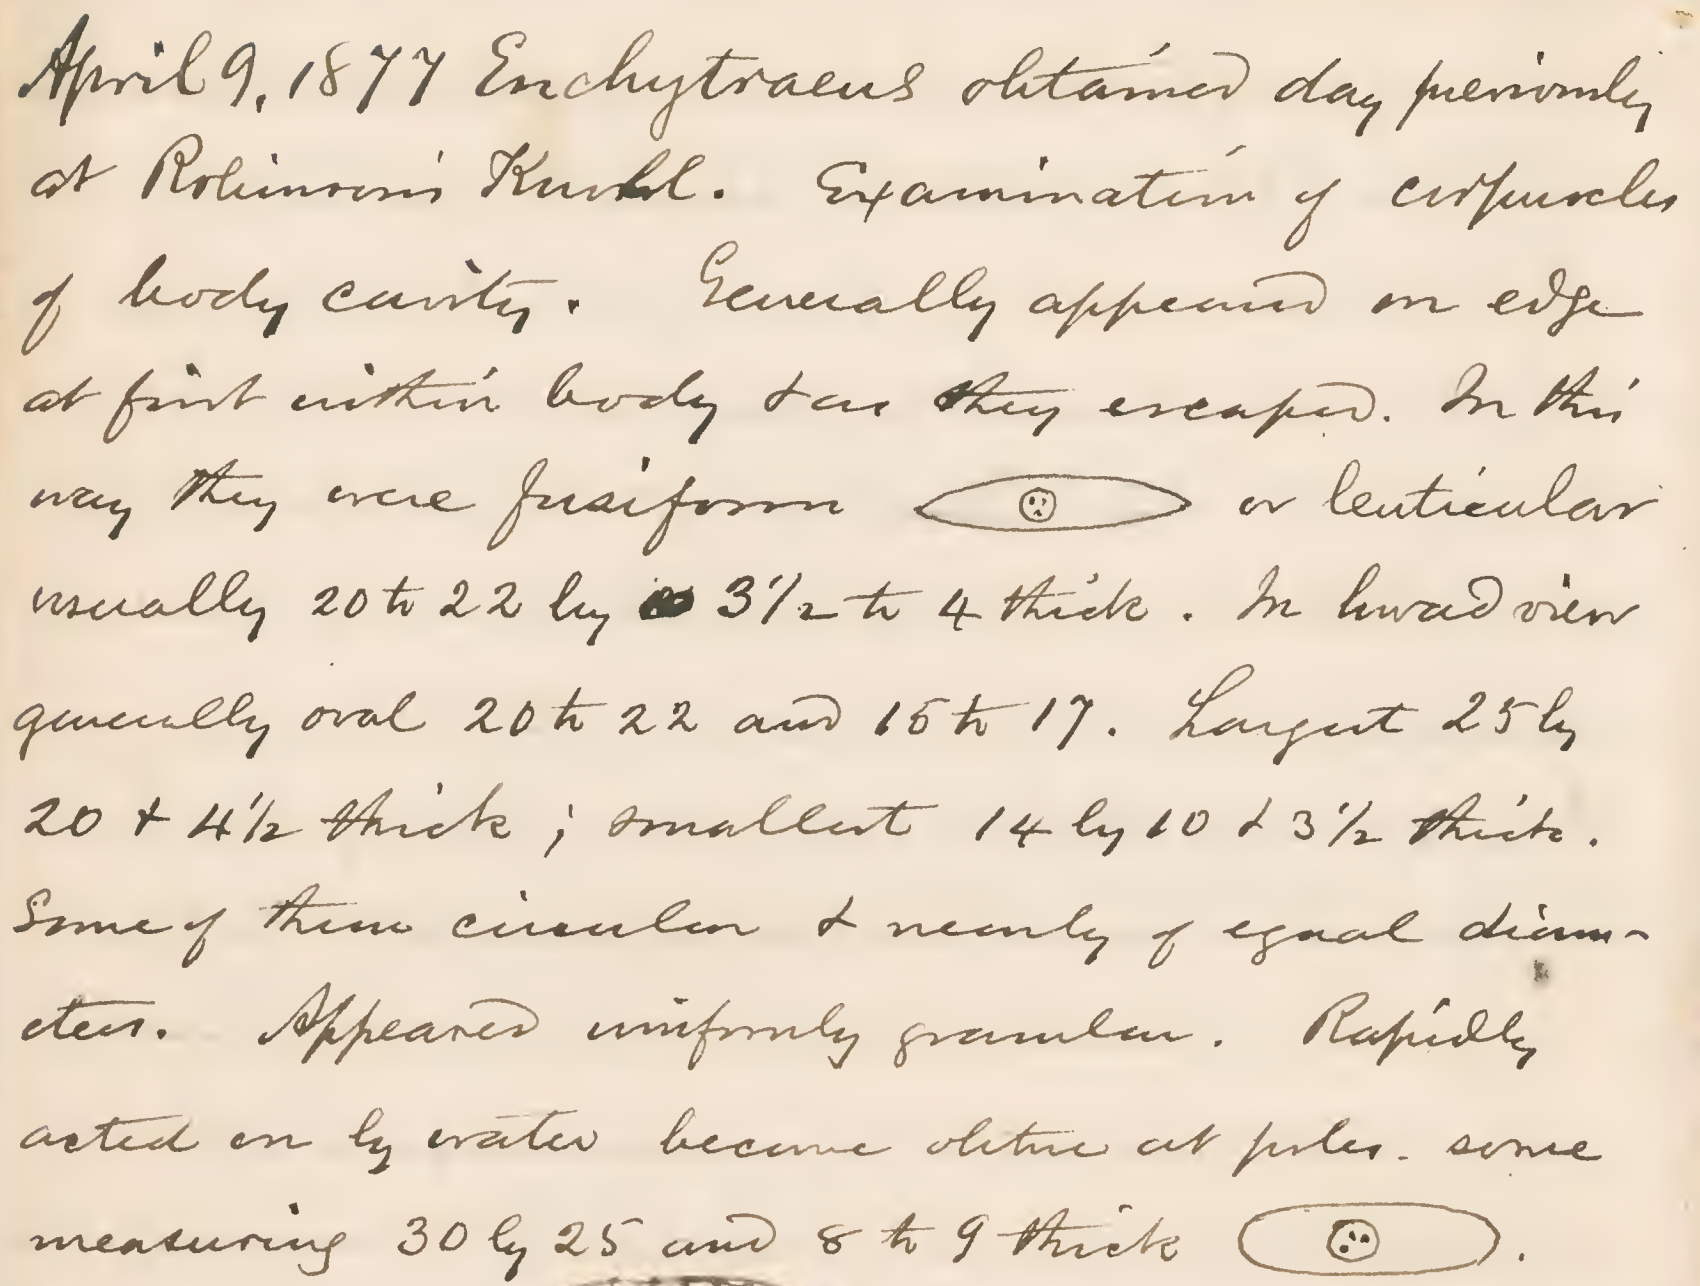 April 9, 1877 Enchytraeus obtained day previously
at Robinson's Knoll. Examination of corpuscles
of body cavity. Generally appeared on edge
at first within body & as they escaped. In this
way they were fusiform or lenticular
usually 20 to 22 by 3 1/2 to 4 thick. In broad view
generally oval 20 to 22 and 15 to 17. Largest 25 by
20 & 4 1/2 thick; smallest 14 by 10 & 3 1/2 thick.
Some of them circular & nearly of equal diam-
eters. Appeared uniformly granular. Rapidly
acted on by water became obtuse at poles. some
measuring 30 by 25 and 8 to 9 thick .